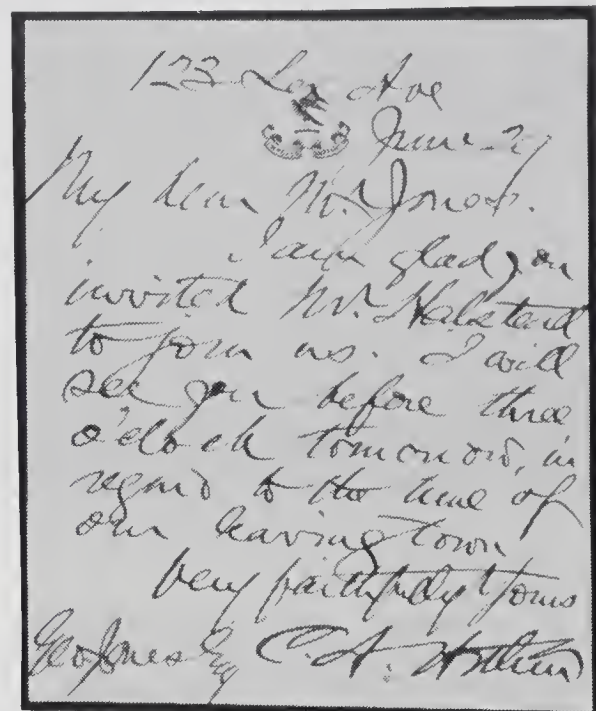 123 Lex Ave
June 27
My dear Mr. Jones.
I am glad you
invited Mr. Halstead
to join us. I will
see you before three
o'clock tomorrow, in
regard to the time of
our leaving town
Very faithfully Yours
Geo Jones Esq C. A. Arthur